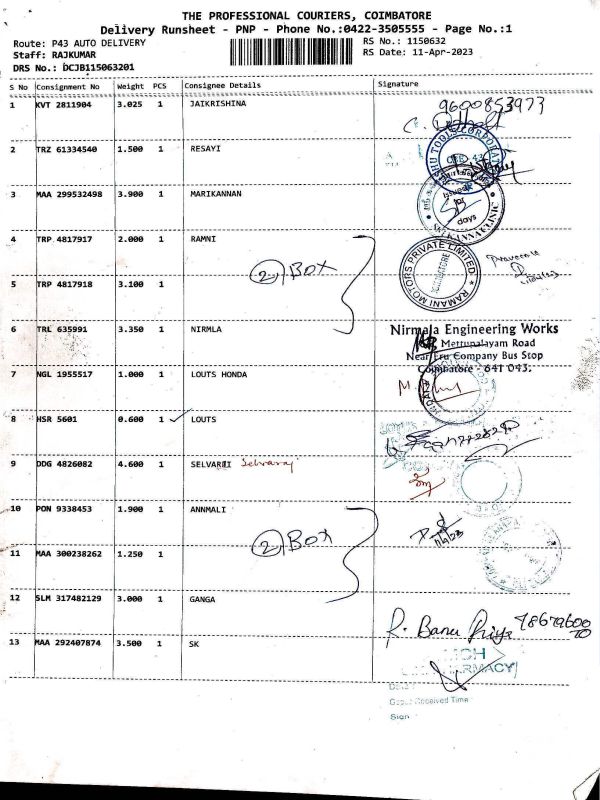 THE PROFESSIONAL COURIERS, COIMBATORE
Delivery Runsheet - PNP - Phone No.:0422-3505555 - Page No.:1
Route: P43 AUTO DELIVERY RS No.: 1150632
Staff: RAJKUMAR RS Date: 11-Apr-2023
DRS No.: DCJB115063201
S No Consignment No Weight PCS Consignee Details Signature
1 KVT 2811904 3.025 1 JAIKRISHINA 9600853973
2 TRZ 61334540 1.500 1 RESAYI
3 MAA 299532498 3.900 1 MARIKANNAN
days
4 TRP 4817917 2.000 1 RAMNI
RAMANI MOTORS PRIVATE LIMITED
COIMBATORE
2) BOX
5 TRP 4817918 3.100 1
6 TRL 635991 3.350 1 NIRMLA
Nirmala Engineering Works
Mettupalayam Road
Near Eru Company Bus Stop
Coimbatore - 641 043.
7 NGL 1955517 1.000 1 LOUTS HONDA
8 HSR 5601 0.600 1 LOUTS
9 DDG 4826082 4.600 1 Selvaraj
10 PON 9338453 1.900 1 ANNMALI
2) BOX
11 MAA 300238262 1.250 1
12 SLM 317482129 3.000 1 GANGA
R. Banu Priya
13 MAA 292407874 3.500 1 SK
PHARMACY
Received Time
Sign